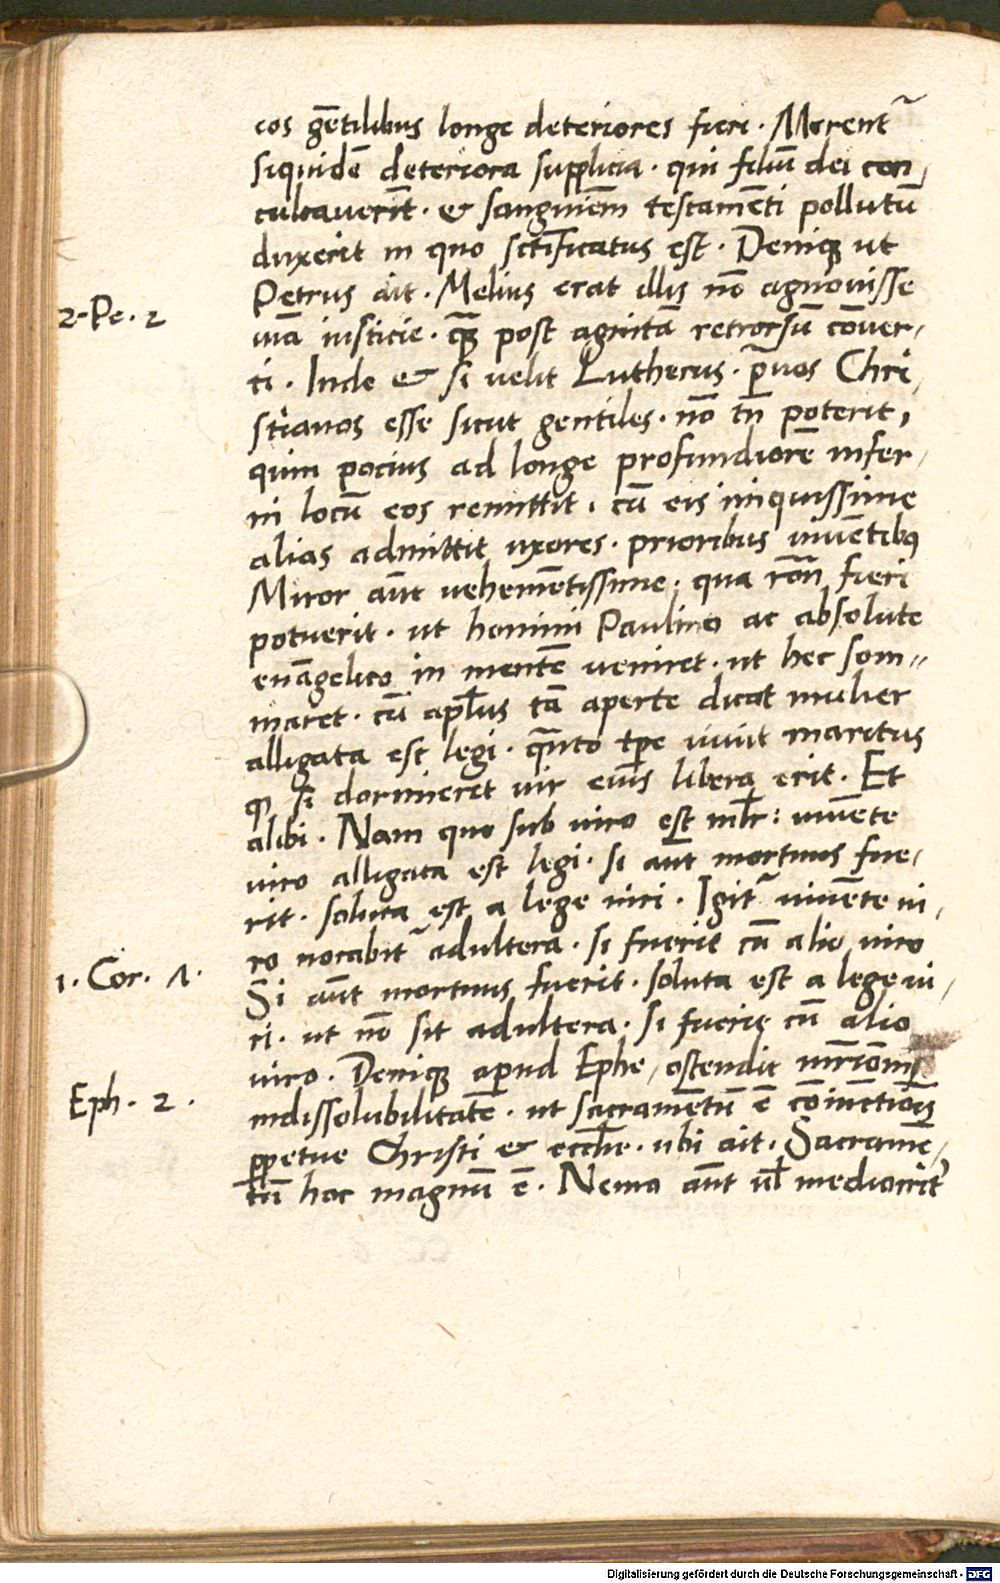 eos gētilibus longe deteriores fieri. Merent᷑
siquidē deteriora supplicia. qui filiū dei con,
culcaverīt. & sanguinem testamēti pollutū
duxerīt in quo sctīficatus est. Deniq̨ ut
2-Pe. 2
Petrus ait. Melius erat illis nō agnovisse
viā iusticie. q̄ꝫ post agnitā retrorsū cōver,
ti. Inde & si velit Lutherus. p̄vos Chri,
stianos esse sicut gentiles. nō tn̄ poterit,
quin pocius ad longe profundiorē infer,
ni locū eos remittit. cū eis iniquissime
alias admittit uxores. prioribus viventibꝫ
Miror aūt vehemētissime. qua rōn fieri
potuerit. ut homini Paulino ac absolute
evāgelico in mentē veniret. ut hec som,,
niaret. cū apl̄us tā aperte dicat mulier
alligata est legi. quāto tp̄e vivit maritus
q̨ si dormierit vir eius libera erit. Et
alibi. Nam que sub viro est ml̄r: vivēte
viro alligata est legi. si aūt mortuus fue,
rit. soluta est a lege viri. Igit᷑ vivēte vi,
ro vocabit᷑ adultera. si fuerit cū alio viro
1. Cor. 7.
Si aūt mortuus fuerit. soluta est a lege vi,
ri. ut nō sit adultera. si fuerit cū alio
viro. Deniq̨ apud Ephe, ostendit mr̄iōnij
Eph. 2.
indissolubilitatē. ut sacramētū ē cōiunctiōis
ꝑpetue Christi & eccl̄ie. ubi ait. Sacramē,
tū hoc magnū ē. Nemo aūt vl̄ mediocrit᷑
Digitalisierung gefördert durch die Deutsche Forschungsgemeinschaft - DFG